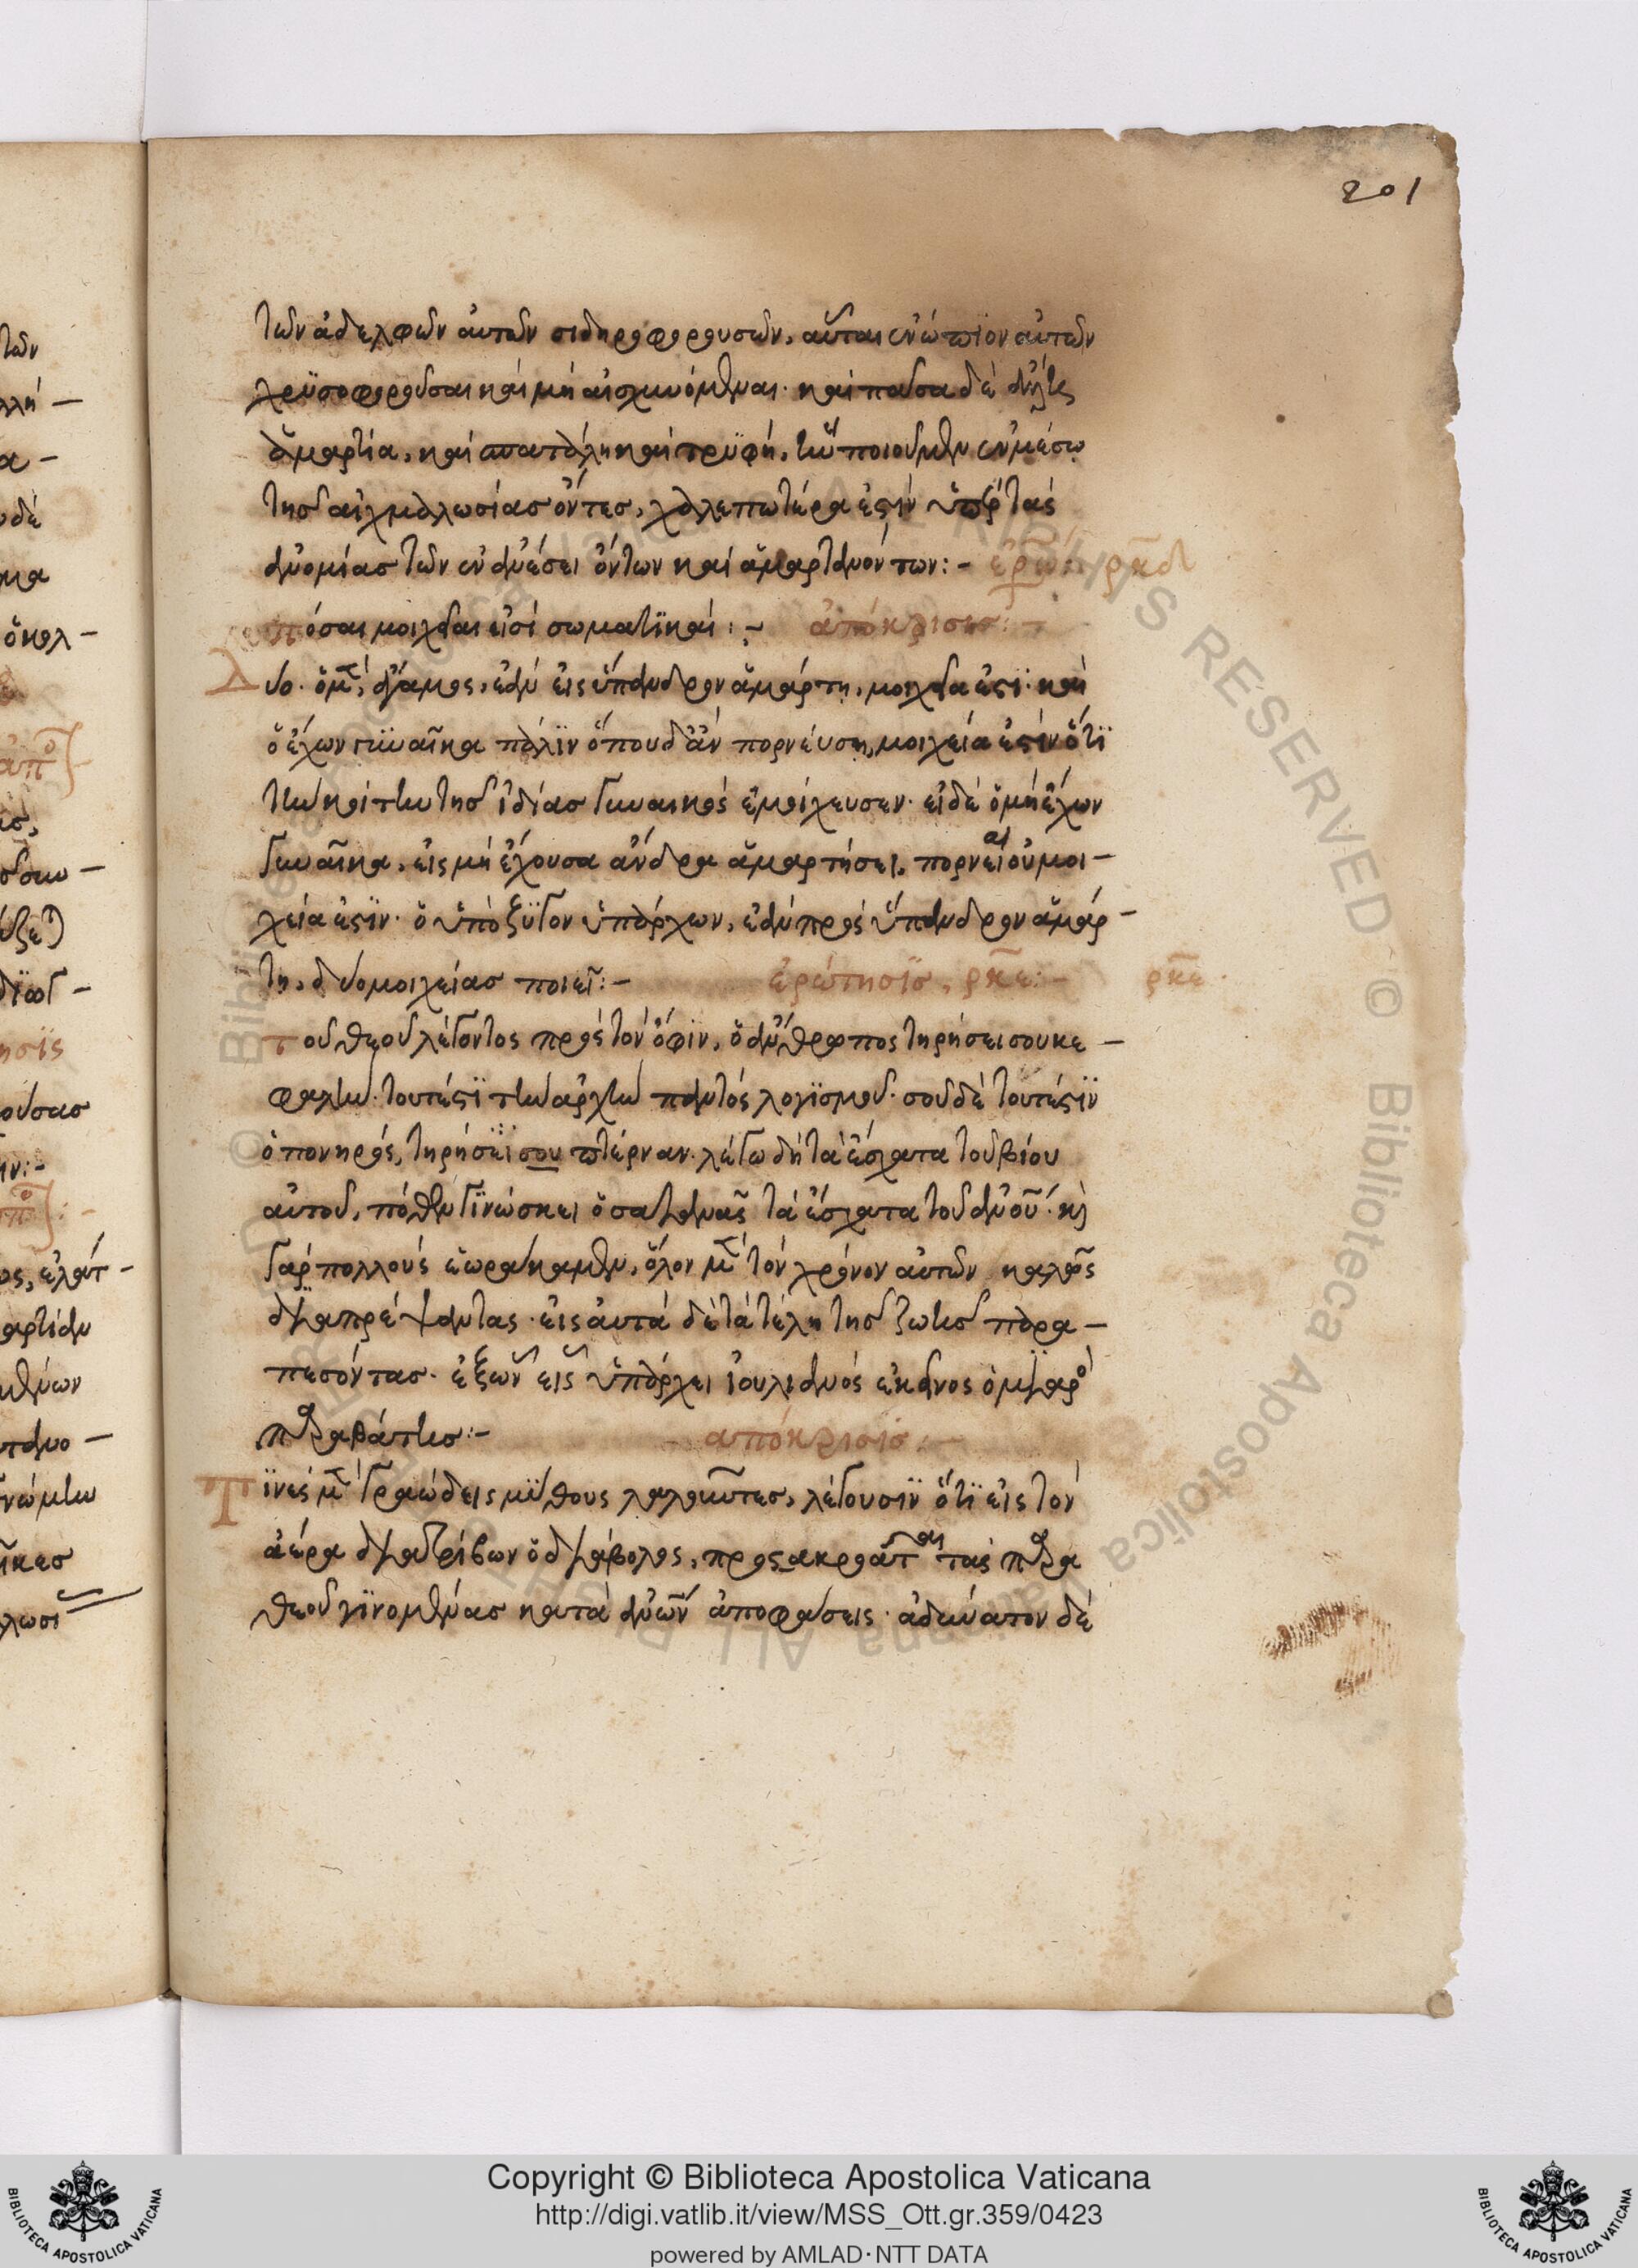 201
τῶν ἀδελφῶν αὐτῶν σιδηροφορουσῶν, αὗται ἐνώπιον αὐτῶν
χρϋσοφοροῦσαι καὶ μὴ αἰσχυνόμεναι· καὶ πᾶσα δὲ
ἁμαρτία, καὶ σπατάλη καὶ τρϋφὴ, ἣν ποιοῦμεν ἐν μέσω
τῆς αἰχμαλωσίας ὄντες, χαλεπωτέρα ἐστὶν ὑπὲρ τὰς
ἀνομίας τῶν ἐν ἀνέσει ὄντων καὶ ἁμαρτανόντων:- ἐρώ ρκδ
πόσαι μοιχεῖαι εἰσὶ σωματϊκαί:- ἀπόκρισις:-
Δύο. ὁ μετὰ γάμος, ἐὰν εἰς ὕπανδρον ἁμάρτη, μοιχεῖα ἐστϊ· καὶ
ὁ ἔχων γϋναῖκα πάλϊν ὅπου δ' ἂν πορνεύση, μοιχεία ἐστὶν ὅτϊ
τὴν κοίτην τῆς ἰδίας γυναικὸς ἐμοίχευσεν· εἰ δὲ ὁ μὴ ἔχων
γυναῖκα, εἰς μὴ ἔχουσα ἄνδρα ἁμαρτήσει, πορνεία οὐ μοι-
χεία ἐστϊν· ὁ ὑπὸ ξϋγὸν ὑπάρχων, ἐὰν πρὸς ὕπανδρον ἁμάρ-
τη, δύο μοιχείας ποιεῖ:- ἐρώτησϊς, ρκε:- ρκε
τοῦ θεοῦ λέγοντος πρὸς τὸν ὄφϊν, ὁ ἄνθρωπος τηρήσει σου κε-
φαλὴν· τουτέστϊ τὴν ἀρχὴν παντὸς λογϊσμοῦ· σοῦ δὲ τουτέστϊν
ὁ πονηρὸς, τηρήσεϊ σου πτέρναν· λέγω δὴ τὰ ἔσχατα τοῦ βίου
αὐτοῦ, πόθεν γϊνώσκει ὁ σατανᾶς τὰ ἔσχατα τοῦ ἀνοῦ· κὶ
γὰρ πολλοὺς ἑωράκαμεν, ὅλον μὲν τὸν χρόνον αὐτῶν καλῶς
διαπρέψαντας· εἰς αὐτὰ δὲ τὰ τέλη τῆς ζωῆς παρα-
πεσόντας· ἐξ ὧν εἷς ὑπάρχει ἰουλιανὸς ἐκεῖνος ὁ μιαρὸ
παραβάτης:- ἀπόκρισϊς:-
Τϊνὲς μὲν γραώδεις μϋθους λαλοῦντες, λέγουσϊν ὅτϊ εἰς τὸν
ἀέρα διατρίβων ὁ διάβολος, προσακροᾶται τὰς παρὰ
θεοῦ γϊνομένας κατὰ ἀνῶν ἀποφάσεις· ἀδύνατον δὲ
Copyright © Biblioteca Apostolica Vaticana
http://digi.vatlib.it/view/MSS_Ott.gr.359/0423
powered by AMLAD·NTT DATA